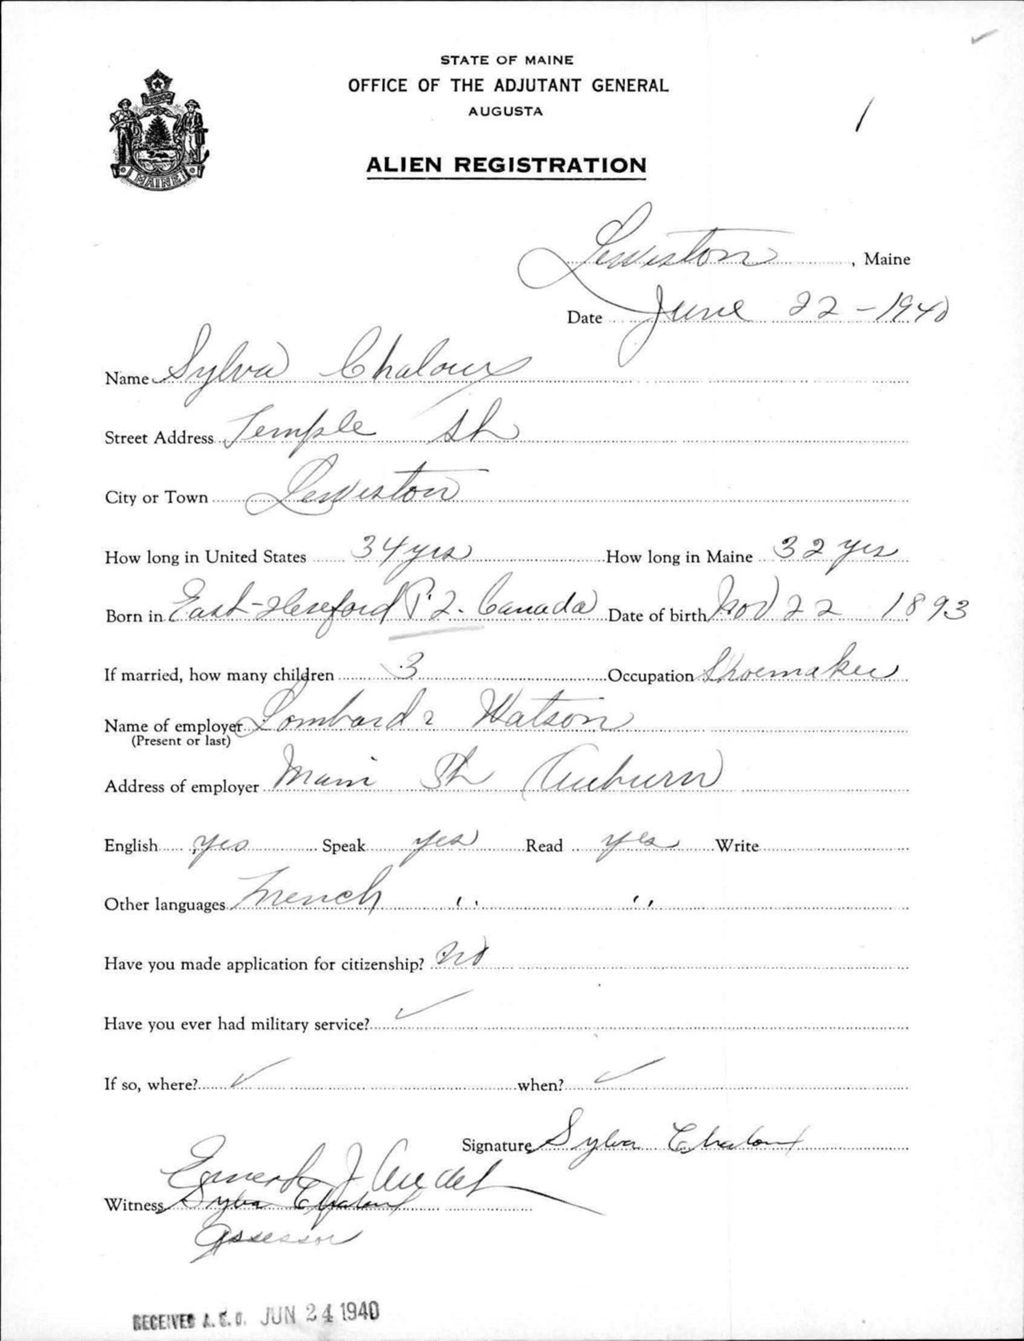 STATE OF MAINE
OFFICE OF THE ADJUTANT GENERAL
AUGUSTA
1
ALIEN REGISTRATION
MAINE
Lewiston, Maine
Date June 22 - 1940
Name Sylva Chaloux
Street Address Temple St
City or Town Lewiston
How long in United States 34 yrs How long in Maine 32 yrs
Born in East-Hereford P.Q. Canada Date of birth Nov 22 1893
If married, how many children 3 Occupation Shoemaker
Name of employer Lombard & Watson
(Present or last)
Address of employer Main St Auburn
English yes Speak yes Read yes Write
Other languages French " "
Have you made application for citizenship? No
Have you ever had military service? ✓
If so, where? ✓ when? ✓
Signature Sylva Chaloux
Ernest J Audet
Witness Sylva Chaloux
Assessor
RECEIVED A.G.O. JUN 24 1940